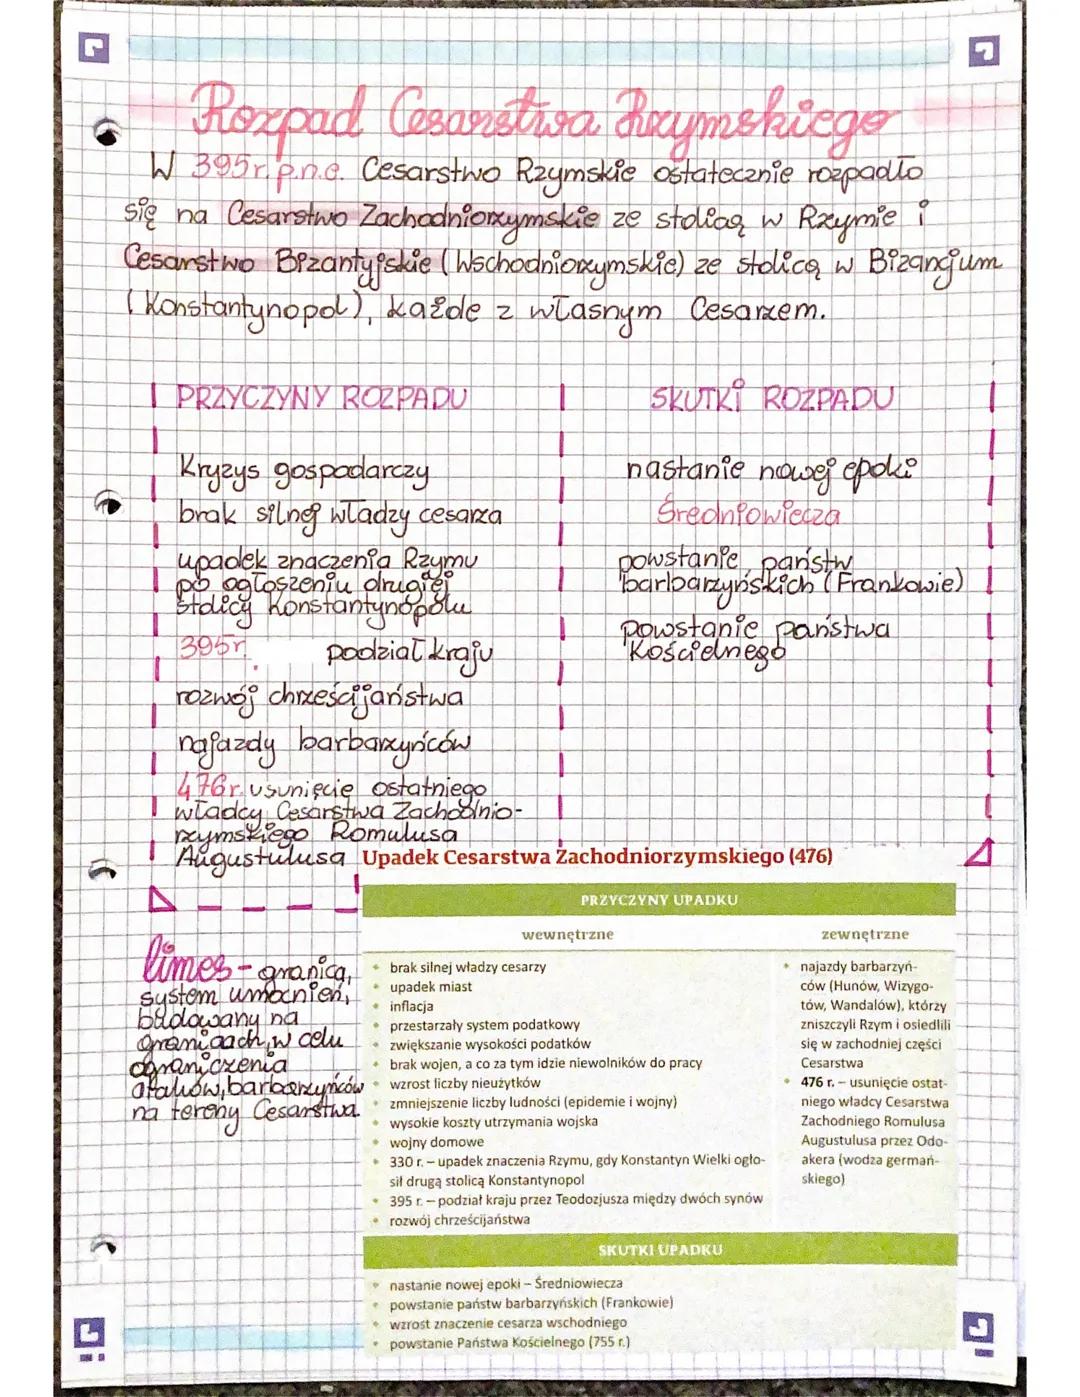 Rozpad Cesarstwa Rzymskiego
W 395r. p.n.e. Cesarstwo Rzymskie ostatecznie rozpadło
się na Cesarstwo Zachodniorzymskie ze stolicą w Rzymie i
Cesarstwo Bizantyjskie (Wschodniorzymskie) ze stolicą w Bizancjum
(Konstantynopol), każde z własnym Cesarzem.
PRZYCZYNY ROZPADU
Kryzys gospodarczy
brak silnej władzy cesarza
upadek znaczenia Rzymu
po ogłoszeniu drugiej
stolicy Konstantynopolu
395r. podział kraju
rozwój chrześcijaństwa
najazdy barbarzyńców
476r. usunięcie ostatniego
władcy Cesarstwa Zachodnio-
rzymskiego Romulusa
Augustulusa
SKUTKI ROZPADU
nastanie nowej epoki
Średniowiecza
powstanie państw
barbarzyńskich (Frankowie)
powstanie państwa
Kościelnego
limes - granica,
system umocnień,
budowany na
granicach, w celu
ograniczenia
ataków, barbarzyńców
na tereny Cesarstwa.
Upadek Cesarstwa Zachodniorzymskiego (476)
PRZYCZYNY UPADKU
wewnętrzne
• brak silnej władzy cesarzy
• upadek miast
• inflacja
• przestarzały system podatkowy
• zwiększanie wysokości podatków
• brak wojen, a co za tym idzie niewolników do pracy
• wzrost liczby nieużytków
• zmniejszenie liczby ludności (epidemie i wojny)
• wysokie koszty utrzymania wojska
• wojny domowe
• 330 r. – upadek znaczenia Rzymu, gdy Konstantyn Wielki ogło-
sił drugą stolicą Konstantynopol
• 395 r. – podział kraju przez Teodozjusza między dwóch synów
• rozwój chrześcijaństwa
zewnętrzne
• najazdy barbarzyń-
ców (Hunów, Wizygo-
tów, Wandalów), którzy
zniszczyli Rzym i osiedlili
się w zachodniej części
Cesarstwa
• 476 r. – usunięcie ostat-
niego władcy Cesarstwa
Zachodniego Romulusa
Augustulusa przez Odo-
akera (wodza germań-
skiego)
SKUTKI UPADKU
• nastanie nowej epoki – Średniowiecza
• powstanie państw barbarzyńskich (Frankowie)
• wzrost znaczenie cesarza wschodniego
• powstanie Państwa Kościelnego (755 r.)